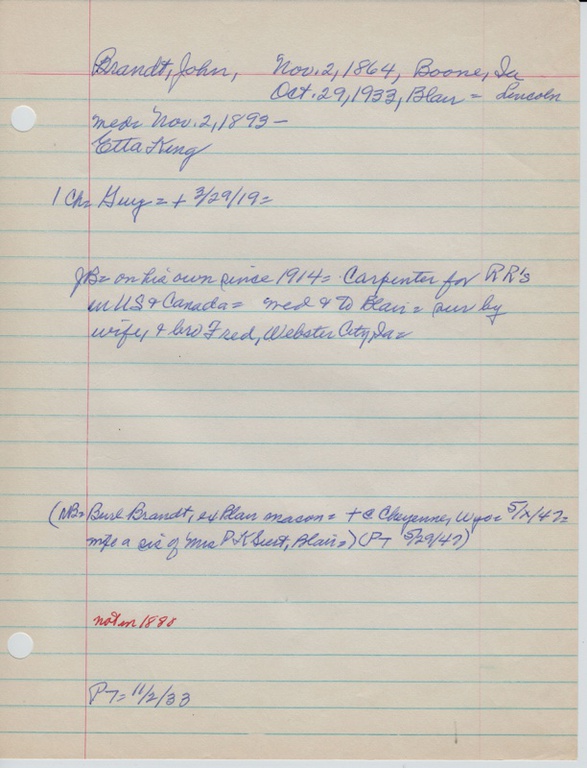 Brandt, John, Nov. 2, 1864, Boone, Ia
Oct. 29, 1933, Blair = Lincoln
med: Nov. 2, 1893 -
Etta King
1 Ch= Guy = + 3/29/19 =
JB= on his own since 1914 = Carpenter for RR's
in US & Canada = med & to Blair = sur by
wife, & bro Fred, Webster City, Ia =
(NB= Burl Brandt, ex Blair mason = + @ Cheyenne, Wyo = 5/x/47=
wife a sis of Mrs P K , Blair =) (PT 5/29/47)
not in 1880
PT= 11/2/33